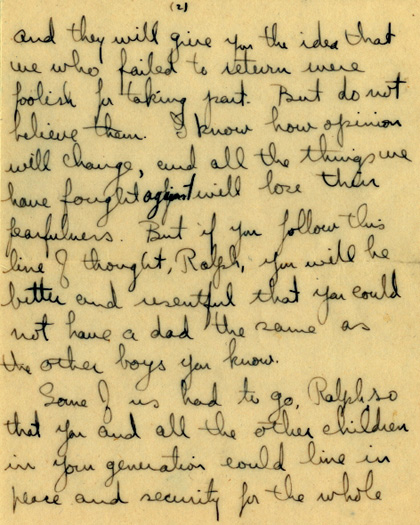 (2)
and they will give you the idea that
we who failed to return were
foolish for taking part. But do not
believe them. I know how opinion
will change, and all the things we
have fought against will lose their
fearfulness. But if you follow this
line of thought, Ralph, you will be
bitter and resentful that you could
not have a dad the same as
the other boys you know.
Some of us had to go, Ralph, so
that you and all the other children
in your generation could live in
peace and security for the whole